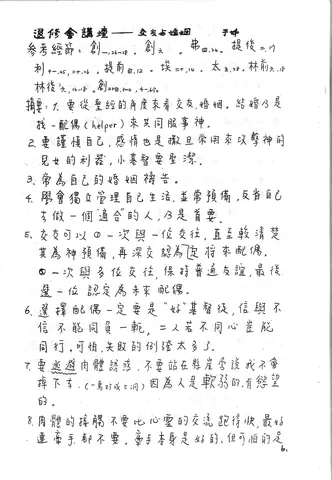 退修會講座——交友与婚姻
參考經節：創一.26-28. 創六. 弗四.26. 提後二.
利 提前四.12. 埃 太五.28. 林前六.18
林後六.14-18.
摘要：1.要從聖經的角度來看交友、婚姻。結婚乃是
找一配偶(helper)來共同服事神。
2.要謹慎自己，感情也是撒旦常用來攻擊神的
兒女的利器，小基督要聖潔。
3.常為自己的婚姻禱告。
4.學會獨立管理自己生活，並常預備，反省自己
去做一個"適合"的人，乃是首要。
5.交友可以①一次與一位交往，直至較清楚
其為神預備，再深交認為定將來配偶。
②一次與多位交往，保持普通友誼，最後
選一位認定為未來配偶。
6.選擇配偶一定要是"好"基督徒，信與不
信不能同負一軛，二人若不同心豈能
同行，可怕，失敗的例證太多了。
7.要逃避肉體誘惑，不要站在懸崖旁說我不會
掉下去，因為人是軟弱的，有慾望
的。
8.肉體的接觸不要比心靈的交流跑得快，最好
連牽手都不要，牽手本身是好的，但可怕的是
6.